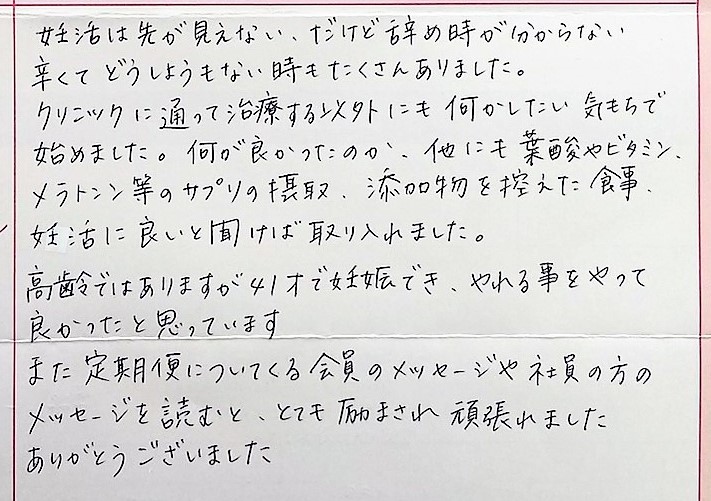 妊活は先が見えない、だけど辞め時が分からない
辛くてどうしようもない時もたくさんありました。
クリニックに通って治療する以外にも何かしたい気もちで
始めました。何が良かったのか、他にも葉酸やビタミン、
メラトニン等のサプリの摂取、添加物を控えた食事、
妊活に良いと聞けば取り入れました。
高齢ではありますが41才で妊娠でき、やれる事をやって
良かったと思っています
また定期便についてくる会員のメッセージや社員の方の
メッセージを読むと、とても励まされ頑張れました
ありがとうございました